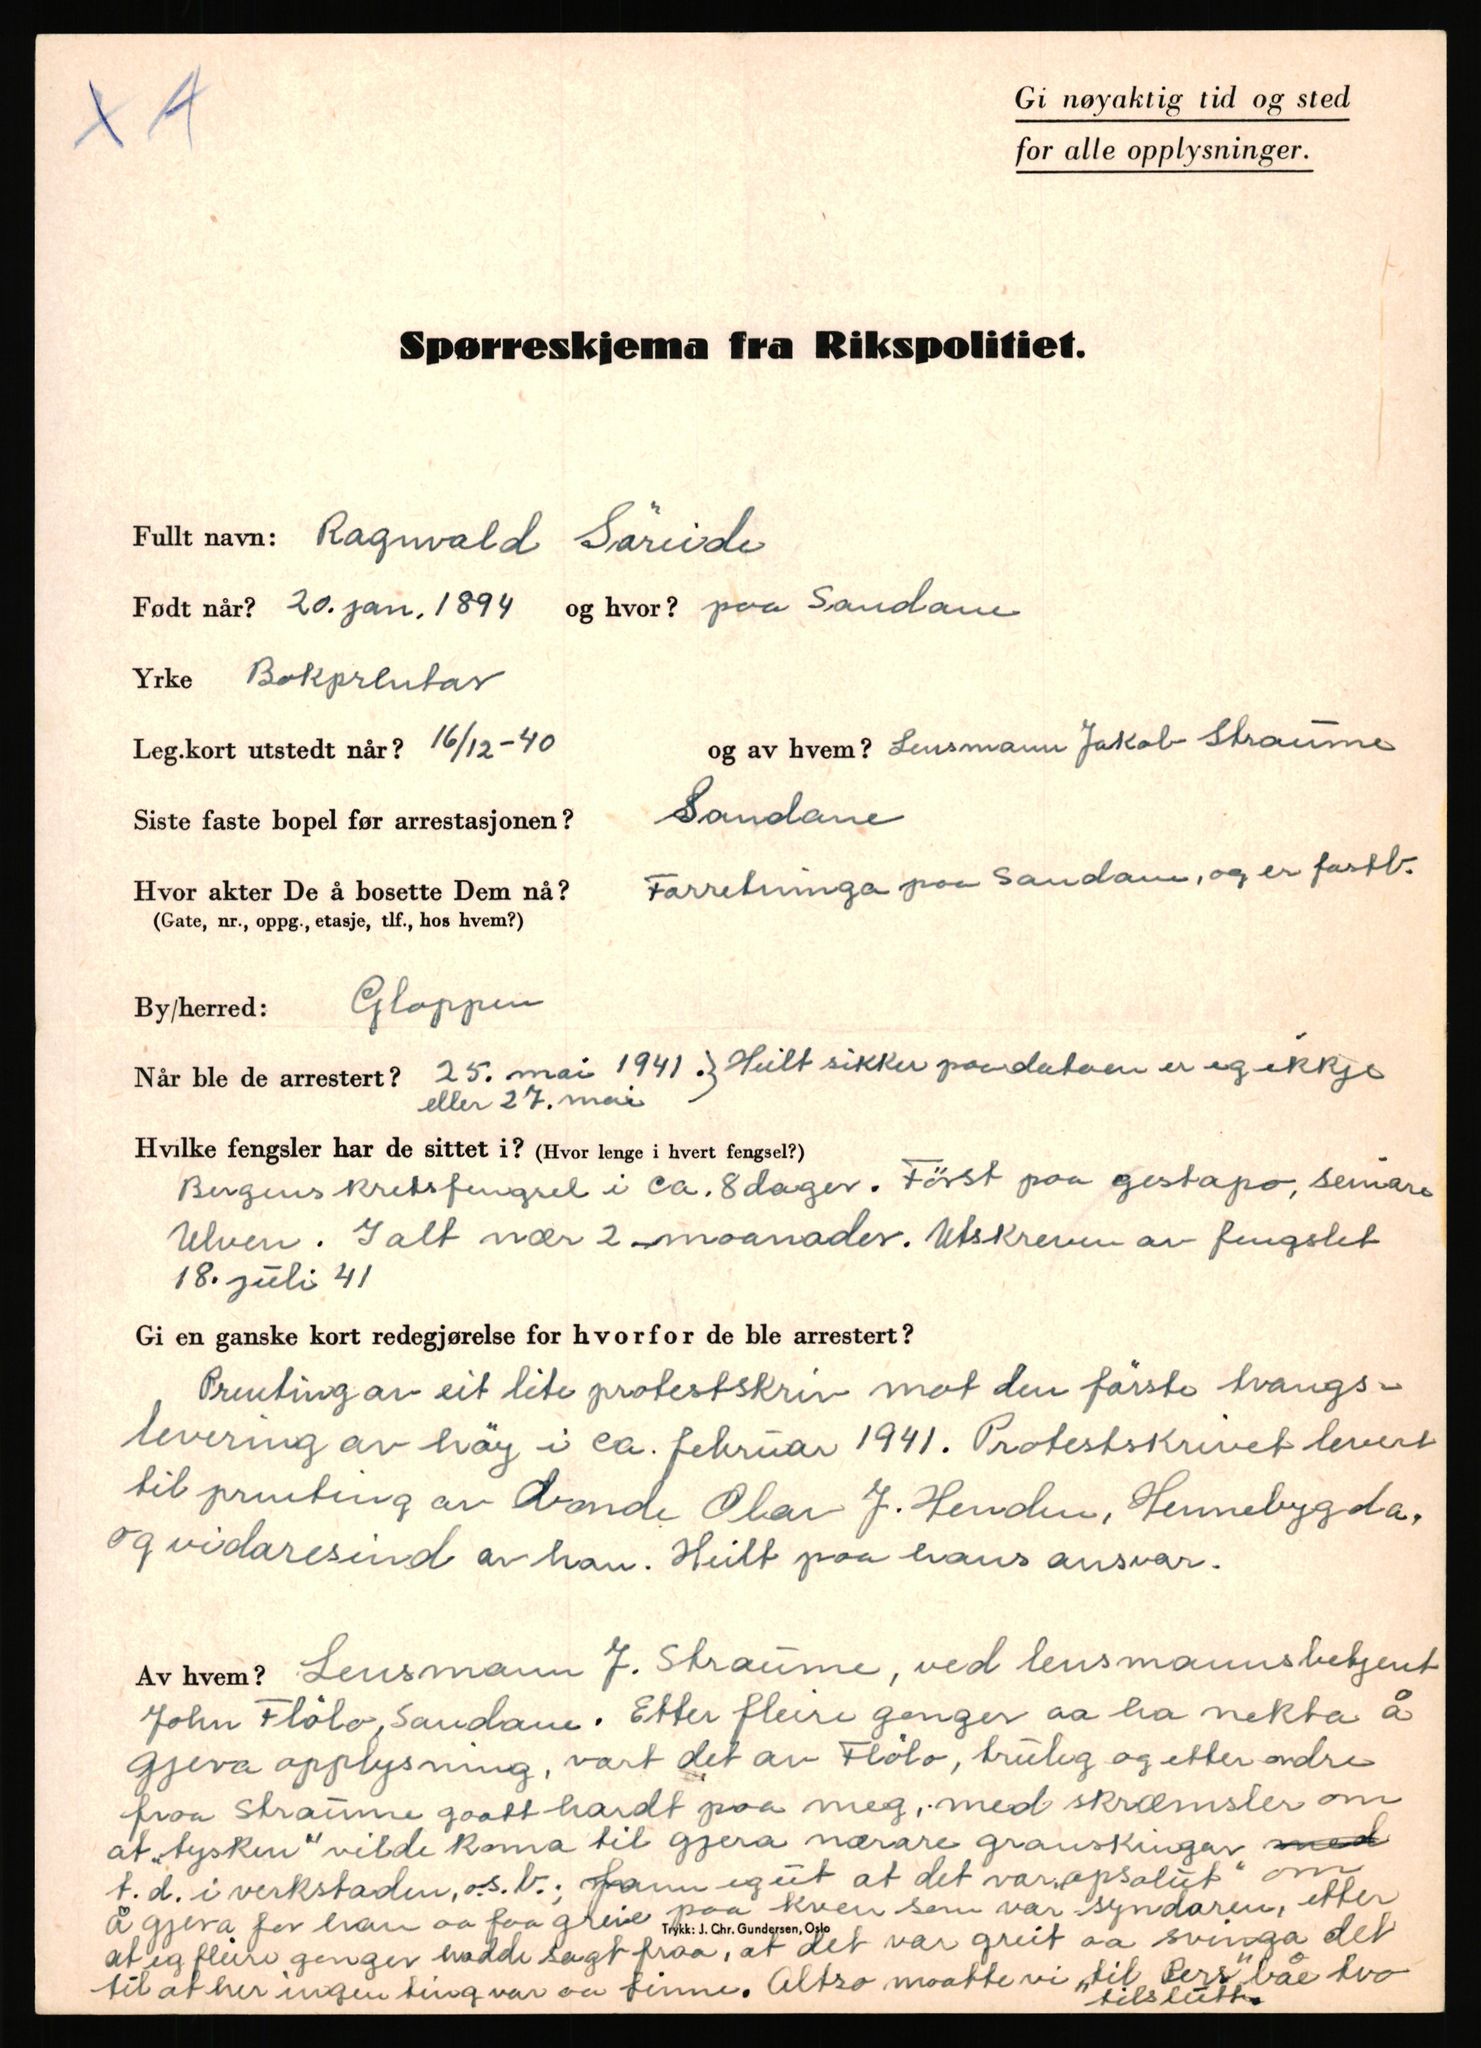 X A
Gi nøyaktig tid og sted
for alle opplysninger.
Spørreskjema fra Rikspolitiet.
Fullt navn: Ragnvald Söreide
Født når? 20. jan. 1894 og hvor? paa Sandane
Yrke Bokprentar
Leg.kort utstedt når? 16/12-40 og av hvem? Lensmann Jakob Straume
Siste faste bopel før arrestasjonen? Sandane
Hvor akter De å bosette Dem nå? Forretninga paa Sandane, og er fastb.
(Gate, nr., oppg., etasje, tlf., hos hvem?)
By/herred: Gloppen
Når ble de arrestert? 25. mai 1941.} Heilt sikker paa datoen er eg ikkje
eller 27. mai
Hvilke fengsler har de sittet i? (Hvor lenge i hvert fengsel?)
Bergens kretsfengsel i ca. 8 dager. Först paa gestapo, seinare
Ulven. I alt nær 2 maanader. Utskreven av fengslet
18. juli 41
Gi en ganske kort redegjørelse for hvorfor de ble arrestert?
Prenting av eit lite protestskriv mot den förste tvangs-
levering av höy i ca. februar 1941. Protestskrivet levert
til prenting av bonde Olav J. Henden, Hennebygda,
og vidaresend av han. Heilt paa hans ansvar.
Av hvem? Lensmann J. Straume, ved lensmannsbetjent
John Flölo, Sandane. Etter fleire genger aa ha nekta å
gjeva opplysning, vart det av Flölo, truleg og etter ordre
fraa Straume gaatt hardt paa meg, med skræmsler om
at „tysken" vilde koma til gjera nærare granskingar med
t. d. i verkstaden, o.s.v.; fann eg ut at det var „apsolut" om
å gjera for han aa faa greie paa kven som var syndaren, etter
Trykk: J. Chr. Gundersen, Oslo
at eg fleire genger hadde sagt fraa, at det var greit aa svinga det
til at her ingen ting var aa finne. Altso maatte vi „til Pers" båe tvo
tilslutt.